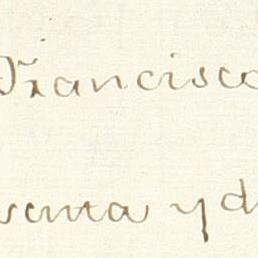 Francisco
senta y d